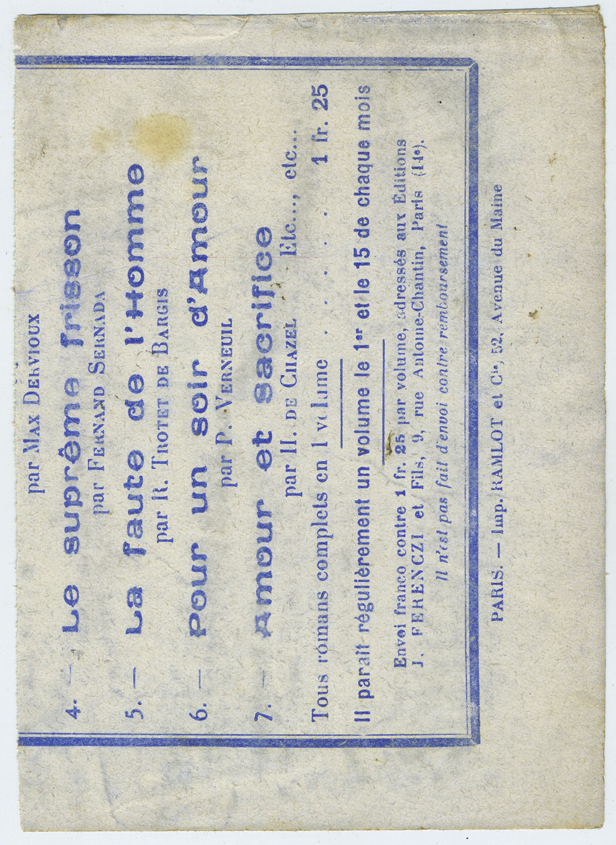 par MAX DERVIOUX
4. — Le suprême frisson
par FERNAND SERNADA
5. — La faute de l'Homme
par R. TROTET DE BARGIS
6. — Pour un soir d'Amour
par P. VERNEUIL
7. — Amour et sacrifice
par H. DE CHAZEL Etc..., etc...
Tous romans complets en 1 volume . . . . . 1 fr. 25
Il paraît régulièrement un volume le 1er et le 15 de chaque mois
Envoi franco contre 1 fr. 25 par volume, adressés aux Éditions
J. FERENCZI et Fils, 9, rue Antoine-Chantin, Paris (14e).
Il n'est pas fait d'envoi contre remboursement
PARIS. — Imp. RAMLOT et Cie, 52, Avenue du Maine